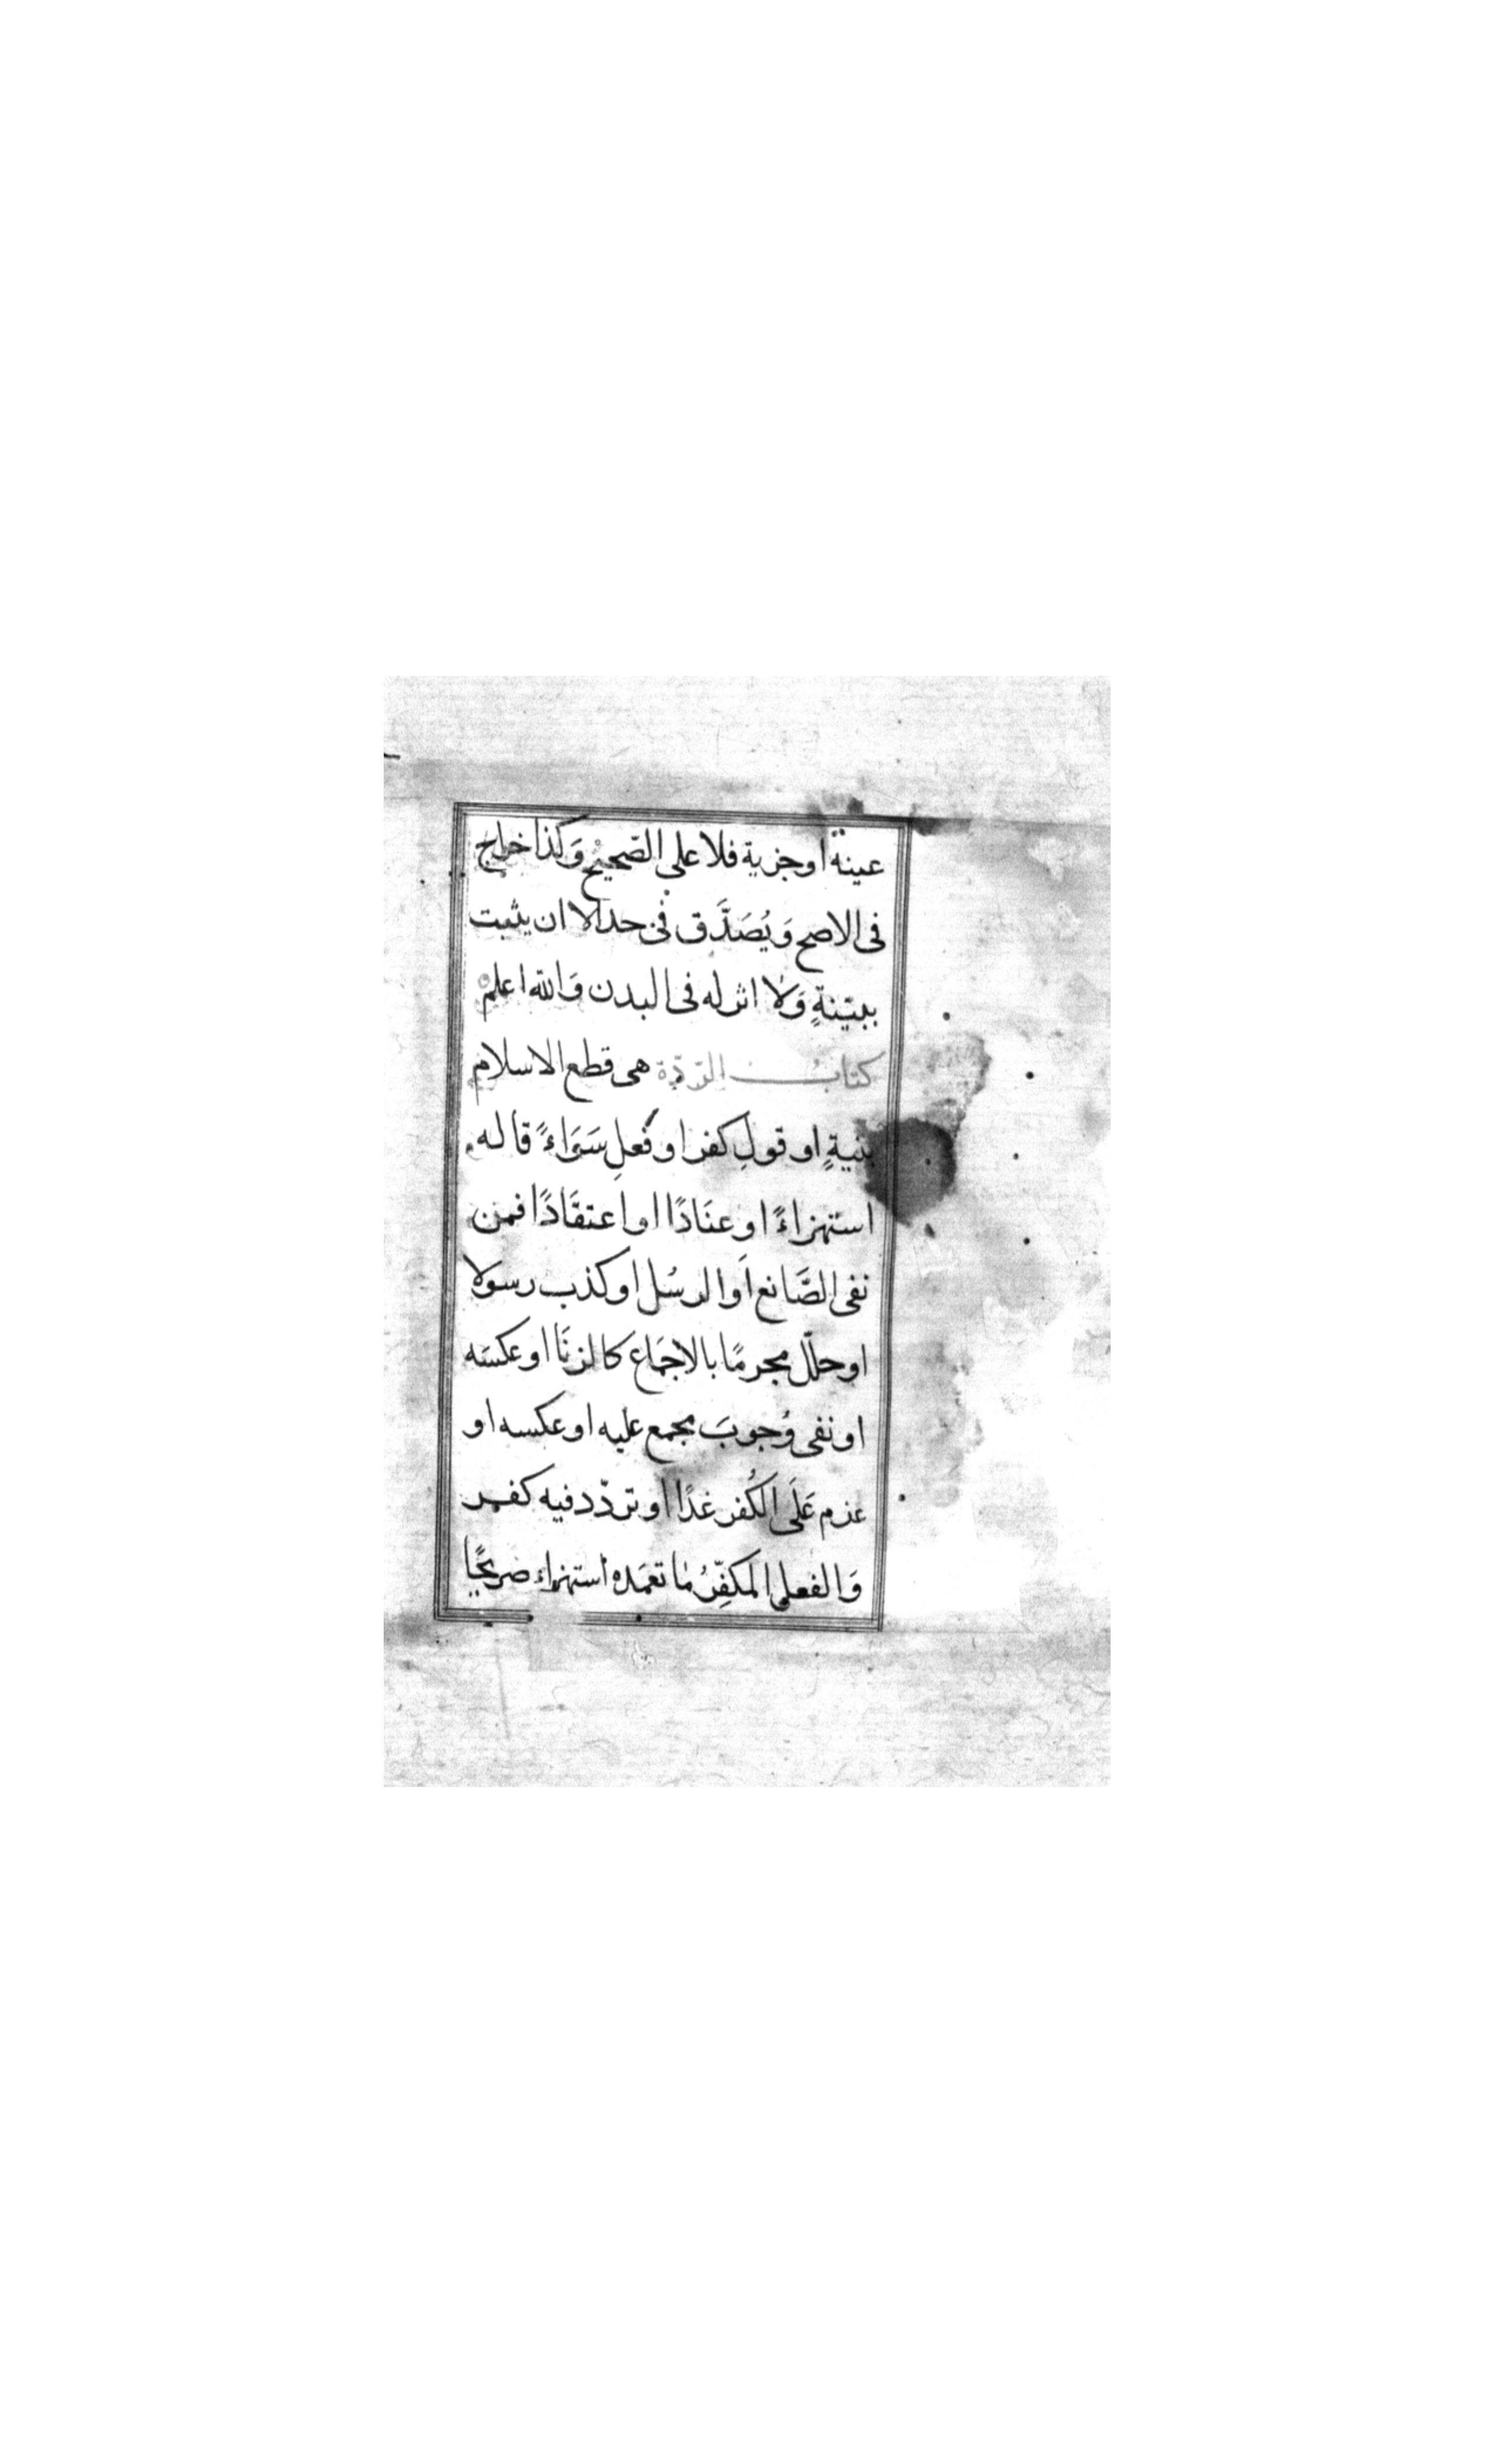 عينة او جزية فلا على الصّحيح وَكذا خراج
فى الاصح وَيُصَدَّق فى حد الا ان يثبت
ببيّنةٍ وَلا اثر له فى البدن وَالله اعلم
كتابُ الرّدّة هى قطع الاسلام
بنيةٍ او قولِ كفر او فعلِ سَوَاءً قاله
استهزاءً او عنَادًا او اعتقَادًا فمن
نفى الصَّانع اَو الرسُل او كذب رسولا
او حلّل محرمًا بالاجمَاع كالزنَا او عكسَه
او نفى وُجوبَ مجمع عليه او عكسه او
عزم عَلَى الكُفر غدًا او تردّد فيه كفر
وَالفعلُ المكفِّرُ مَا تعمّده استهزاء صريحًا